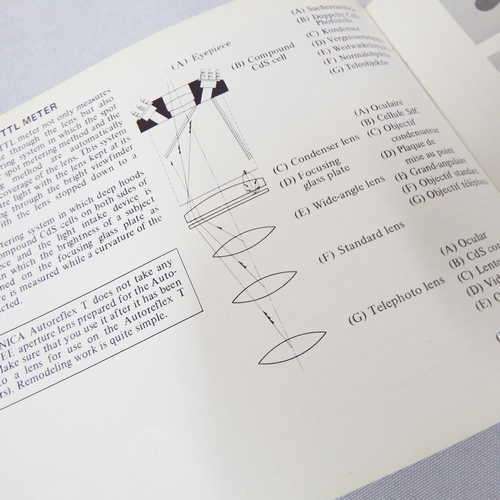 TTL METER
TTL meter not only measures
through the lens, but also
ering system in which the spot
spot metering method and the
method are automatically
advantage of them. This system
light with the lens kept at its
through the bright viewfinder
with the lens stopped down to a
metering system in which deep hoods
compound CdS cells on both sides of
and the light intake device is
in which the brightness of a subject
on the focusing glass plate as
is measured while a curvature of the
cted.
NICA Autoreflex T does not take any
EE aperture lens prepared for the Auto-
Make sure that you use it after it has been
to a lens for use on the Autoreflex T
rs). Remodeling work is quite simple.
(A) Eyepiece
(B) Compound
CdS cell
(C) Condenser lens
(D) Focusing
glass plate
(E) Wide-angle lens
(F) Standard lens
(G) Telephoto lens
(A)
(B) Doppelte CdS
(C) Kondensor
(D)
(E)
(F) Normalobjektiv
(G)
(A) Oculaire
(B) Cellule SdC
(C) Objectif
condensateur
(D) Plaque de
mise au point
(E) Grand-angulaire
(F) Objectif standard
(G) Objectif
(A) Ocular
(B) CdS
(C)
(D)
(E)